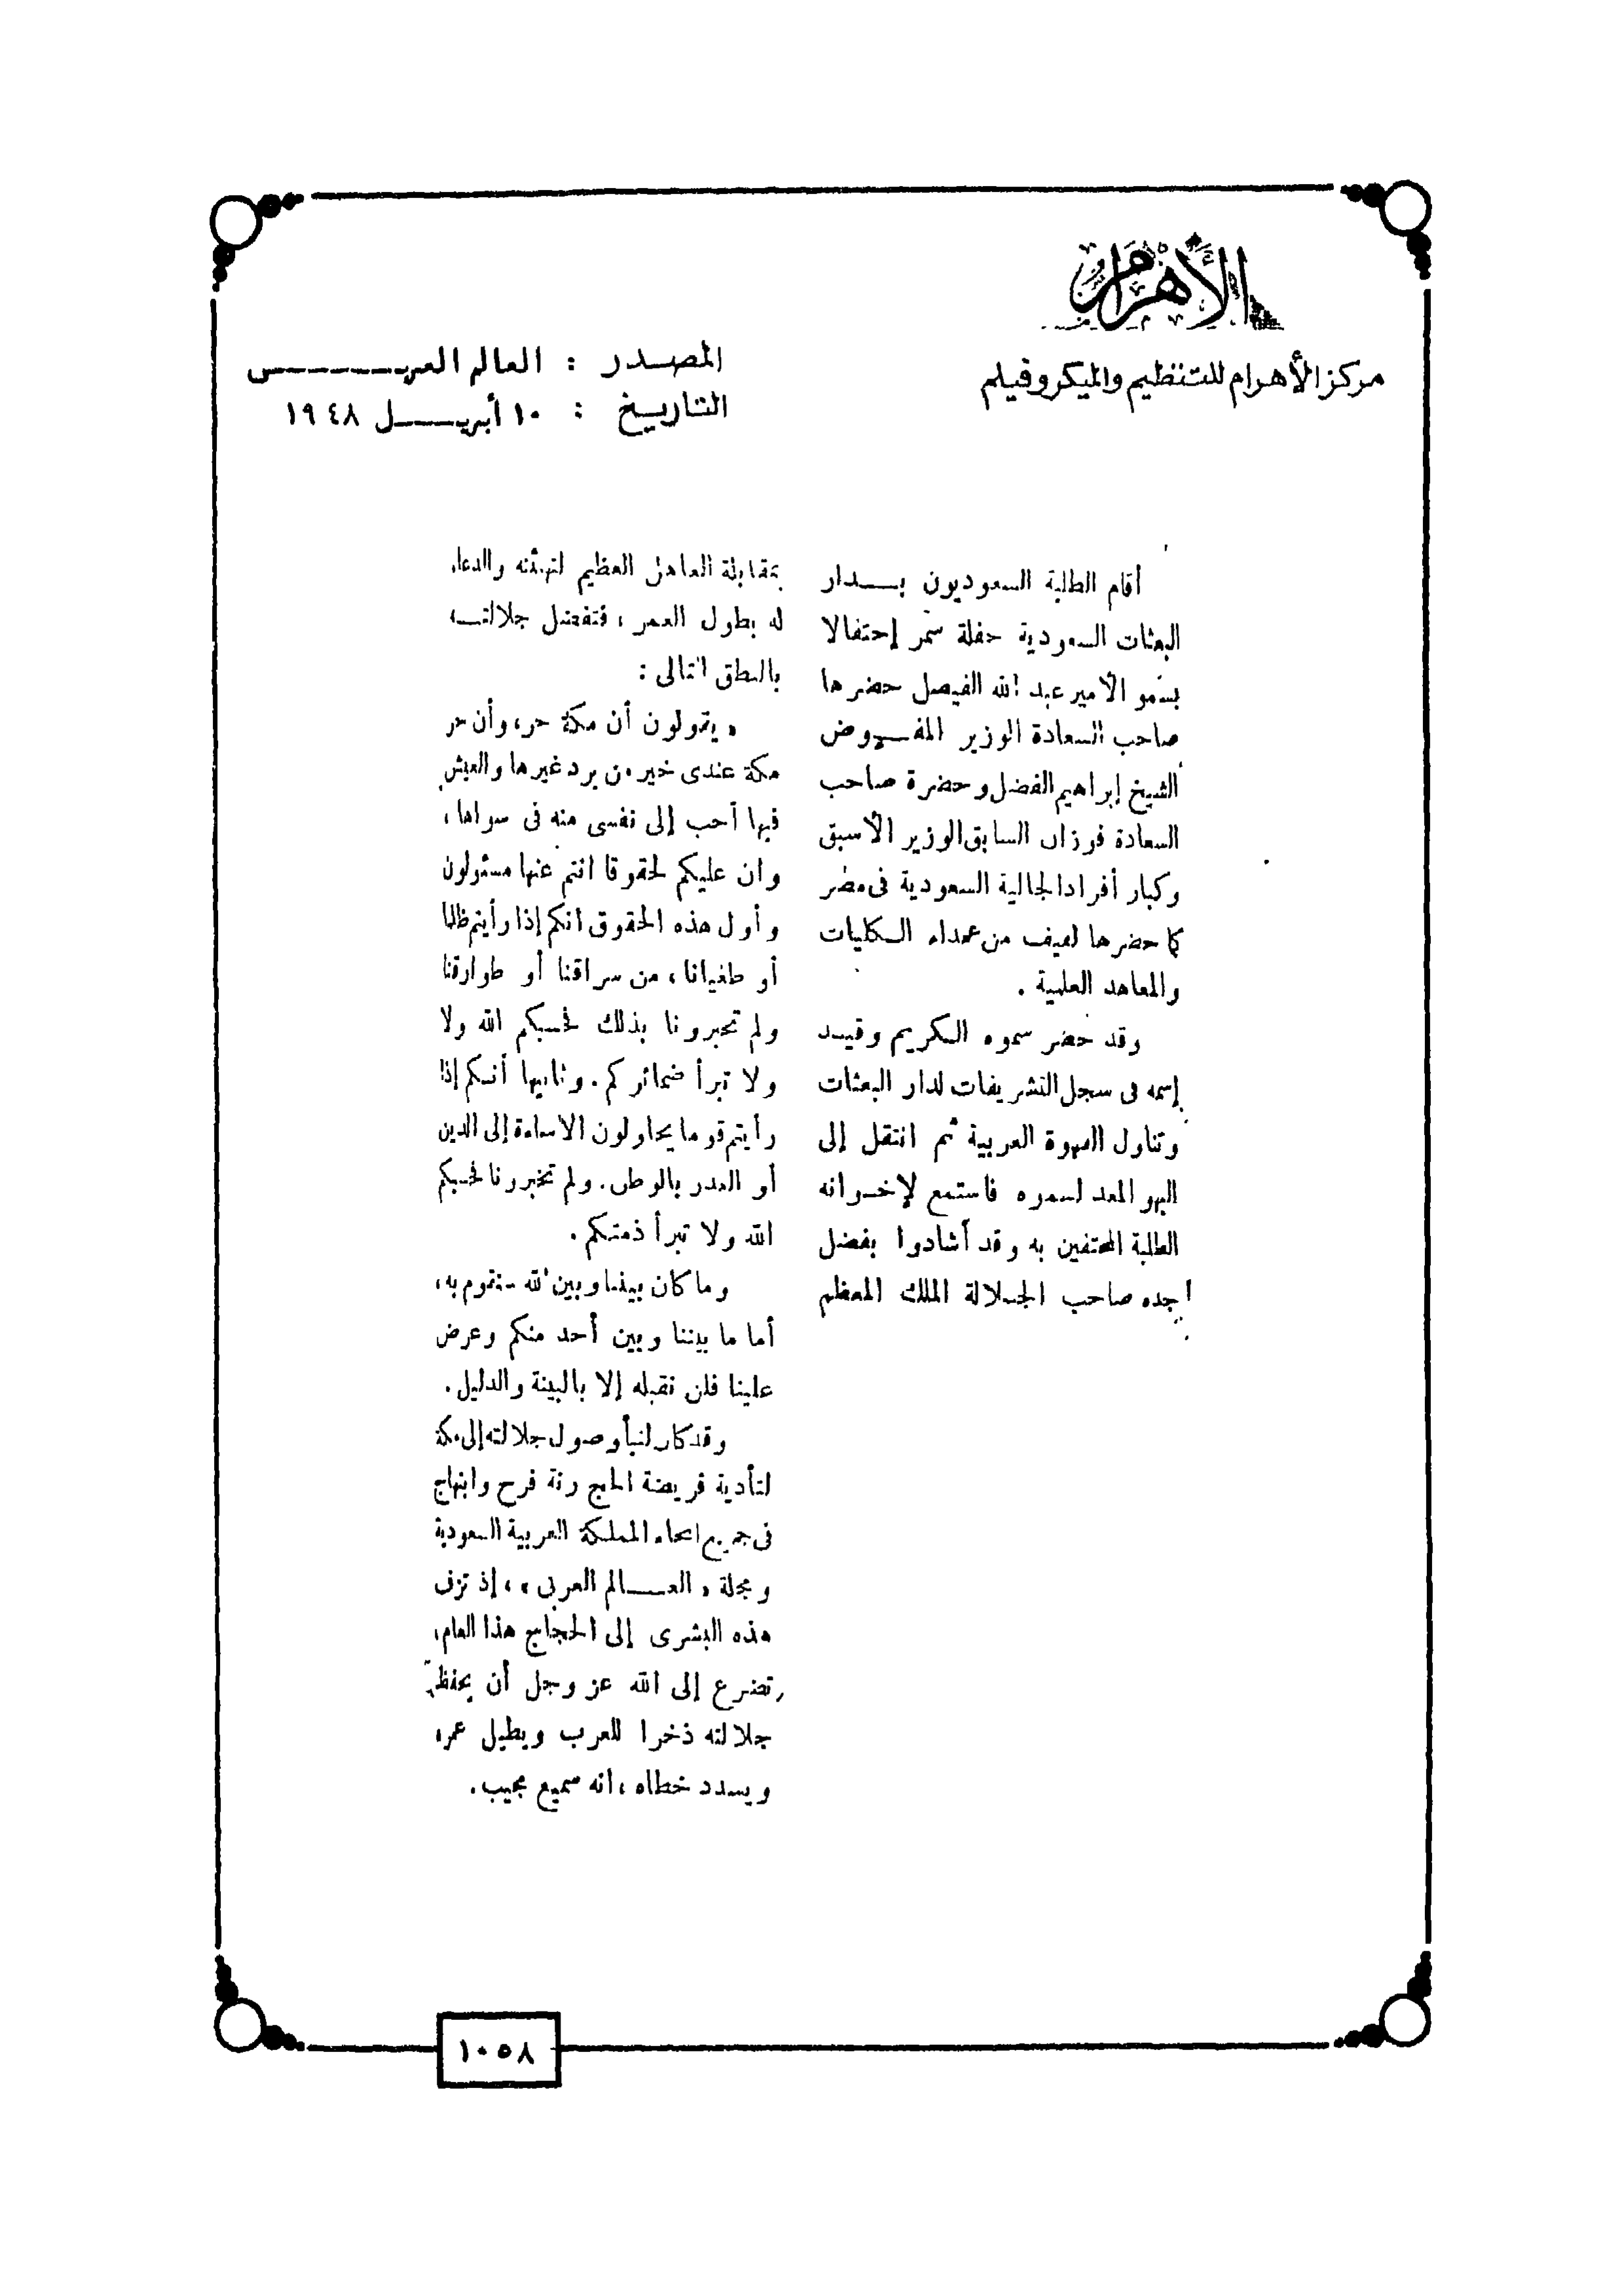 الأهرام
مركز الأهرام للتنظيم والميكروفيلم
المصدر : العالم العربي
التاريخ : ١٠ أبريل ١٩٤٨
أقام الطلبة السعوديون بدار
البعثات السعودية حفلة سمر إحتفالا
بسمو الأمير عبد الله الفيصل حضرها
صاحب السعادة الوزير المفوض
الشيخ إبراهيم الفضل وحضرة صاحب
السعادة فوزان السابق الوزير الأسبق
وكبار أفراد الجالية السعودية فى مصر
كما حضرها لفيف من عمداء الكليات
والمعاهد العلمية .
وقد حضر سموه الكريم وقيد
إسمه فى سجل التشريفات لدار البعثات
وتناول القهوة العربية ثم انتقل إلى
البهو المعد لسمره فاستمع لإخوانه
الطلبة المحتفين به وقد أشادوا بفضل
جده صاحب الجلالة الملك المعظم
بمقابلة العاهل العظيم لتهنئته والدعاء
له بطول العمر ، فتفضل جلالته
بالنطق التالى :
« يقولون أن مكة حر، وأن حر
مكة عندى خير من برد غيرها والعيش
فيها أحب إلى نفسى منه فى سواها ،
وان عليكم لحقوقا انتم عنها مسئولون
وأول هذه الحقوق انكم إذا رأيتم ظلما
أو طغيانا ، من سراقنا أو طوارقنا
ولم تخبرونا بذلك فحسبكم الله ولا
ولا تبرأ ضمائركم . وثانيها أنكم إذا
رأيتم قوما يحاولون الاساءة إلى الدين
أو الغدر بالوطن . ولم تخبرونا فحسبكم
الله ولا تبرأ ذمتكم .
وما كان بيننا وبين الله سنقوم به ،
أما ما بيننا وبين أحد منكم وعرض
علينا فلن نقبله إلا بالبينة والدليل .
وقد كان لنبأ وصول جلالته إلى مكة
لتأدية فريضة الحج رنة فرح وابتهاج
فى جميع انحاء المملكة العربية السعودية
ومجلة « العالم العربى » ، إذ تزف
هذه البشرى إلى الحجاج هذا العام ،
تضرع إلى الله عز وجل أن يحفظ
جلالته ذخرا للعرب ويطيل عمره
ويسدد خطاه ، انه سميع مجيب .
١٠٥٨